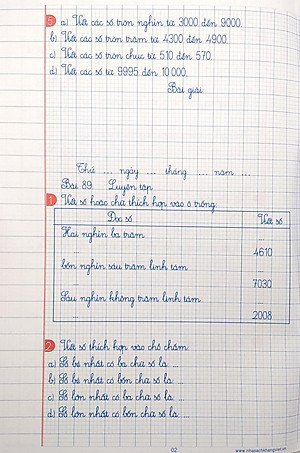 5 a) Viết các số tròn nghìn từ 3000 đến 9000.
b) Viết các số tròn trăm từ 4300 đến 4900.
c) Viết các số tròn chục từ 510 đến 570.
d) Viết các số từ 9995 đến 10 000.
Bài giải
Thứ ... ngày ... tháng ... năm ...
Bài 89: Luyện tập
1 Viết số hoặc chữ thích hợp vào ô trống
Đọc số Viết số
Hai nghìn ba trăm ...
... 4610
bốn nghìn sáu trăm linh tám ...
... 7030
Sáu nghìn không trăm linh tám ...
... 2008
2 Viết số thích hợp vào chỗ chấm
a) Số bé nhất có ba chữ số là ...
b) Số bé nhất có bốn chữ số là ...
c) Số lớn nhất có ba chữ số là ...
d) Số lớn nhất có bốn chữ số là ...
02